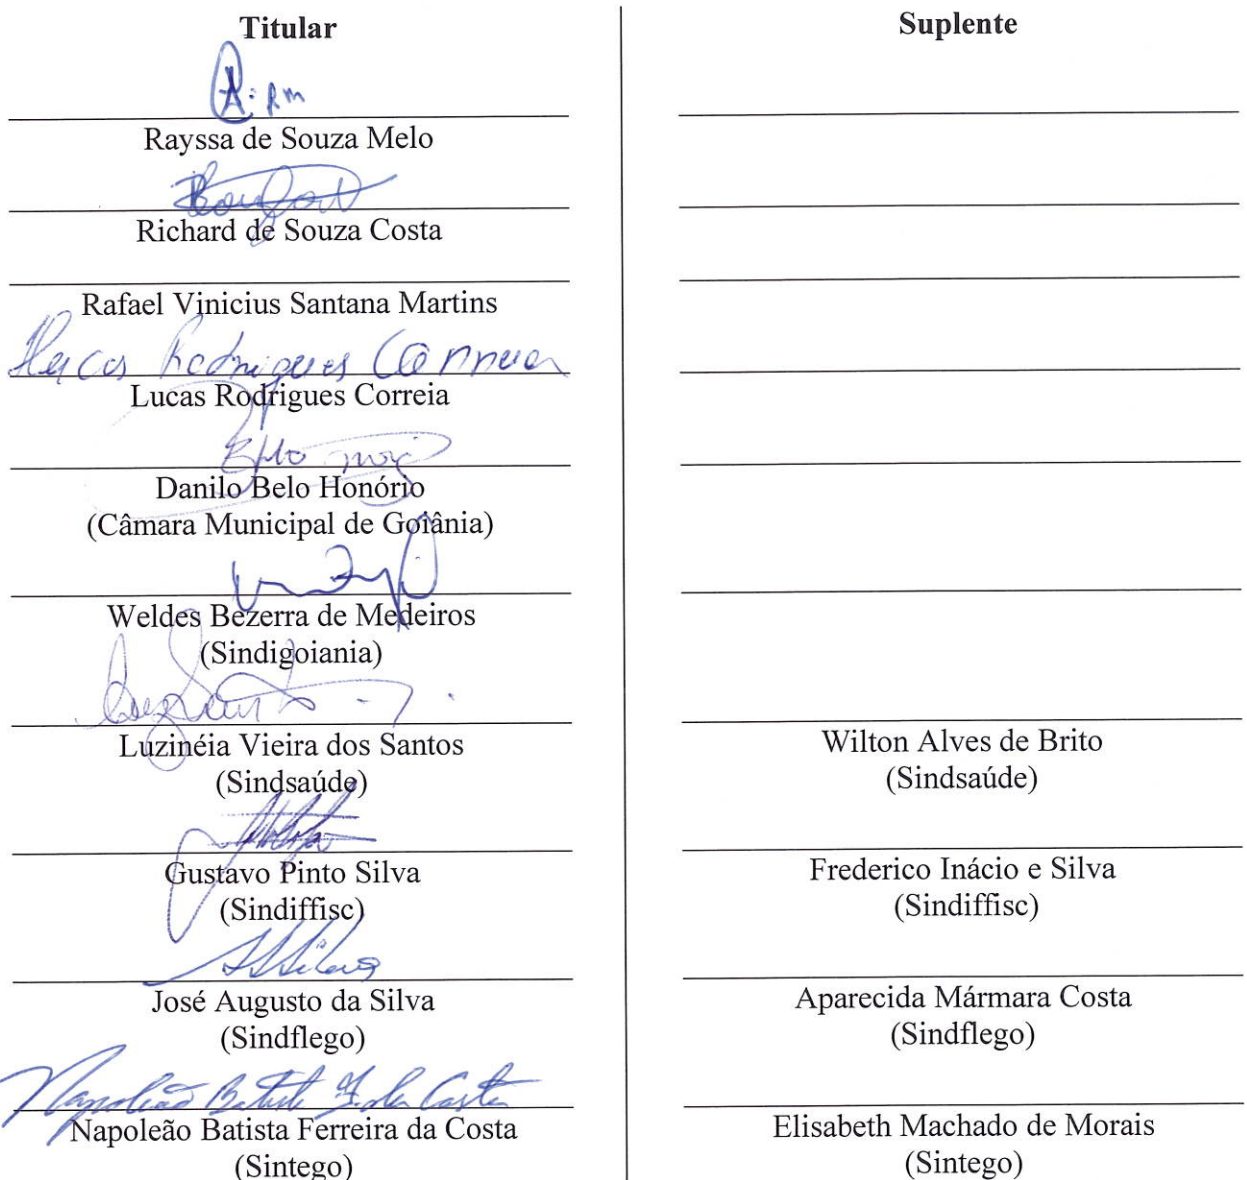 Titular
Rayssa de Souza Melo
Richard de Souza Costa
Rafael Vinicius Santana Martins
Lucas Rodrigues Correia
Lucas Rodrigues Correia
Danilo Belo Honório
(Câmara Municipal de Goiânia)
Weldes Bezerra de Medeiros
(Sindigoiania)
Luzinéia Vieira dos Santos
(Sindsaúde)
Gustavo Pinto Silva
(Sindiffisc)
José Augusto da Silva
(Sindflego)
Napoleão Batista F. da Costa
Napoleão Batista Ferreira da Costa
(Sintego)
Suplente
Wilton Alves de Brito
(Sindsaúde)
Frederico Inácio e Silva
(Sindiffisc)
Aparecida Mármara Costa
(Sindflego)
Elisabeth Machado de Morais
(Sintego)